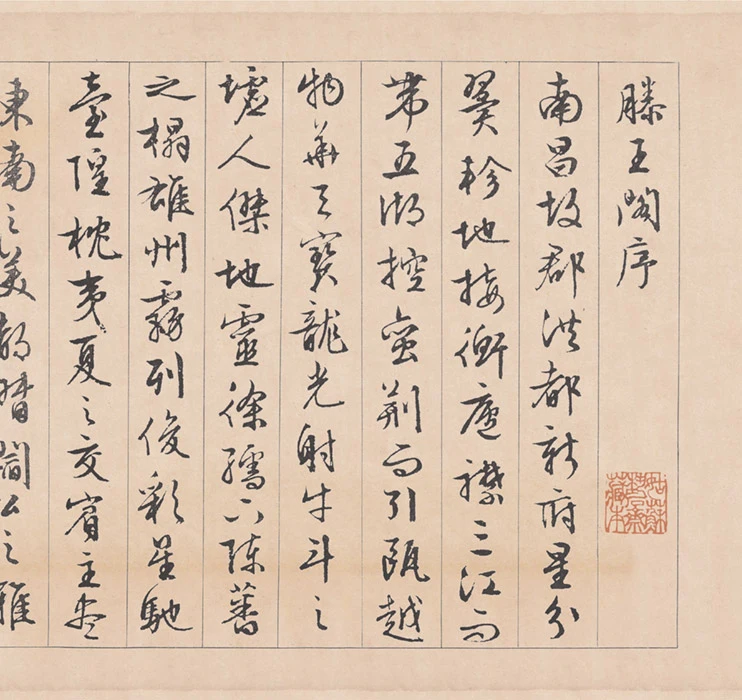 滕王閣序
南昌故郡洪都新府星分
翼軫地接衡廬襟三江而
帶五湖控蠻荊而引甌越
物華天寶龍光射牛斗之
墟人傑地靈徐孺下陳蕃
之榻雄州霧列俊彩星馳
臺隍枕夷夏之交賓主盡
東南之美都督閻公之雅